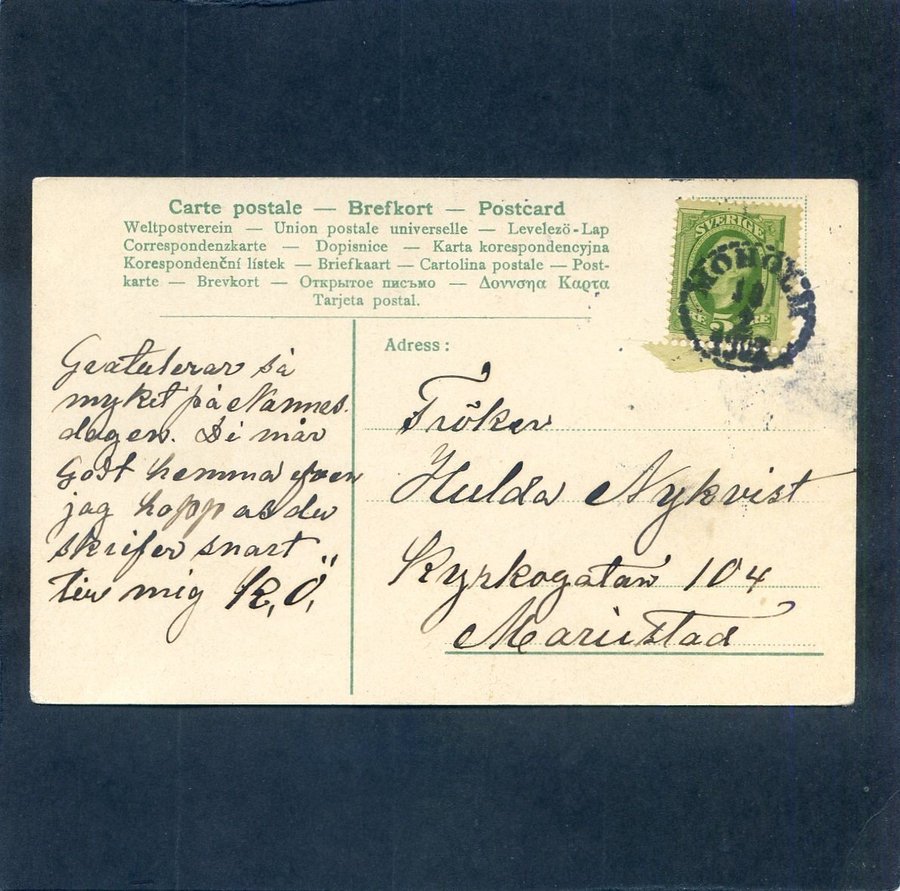 Carte postale — Brefkort — Postcard
Weltpostverein — Union postale universelle — Levelezö-Lap
Correspondenzkarte — Dopisnice — Karta korespondencyjna
Korespondenční lístek — Briefkaart — Cartolina postale — Post-
karte — Brevkort — Открытое письмо — Δουνσηα Καρτα
Tarjeta postal.
SVERIGE
5
MOHOLM
19
2
190
Adress:
Gratulerar så
myket på Namnes
dagen. Di mår
Gott hemma även
jag hopp as du
skrifer snart
till mig K. Ö.
Fröken
Hulda Nykvist
Kyrkogatan 104
Mariestad